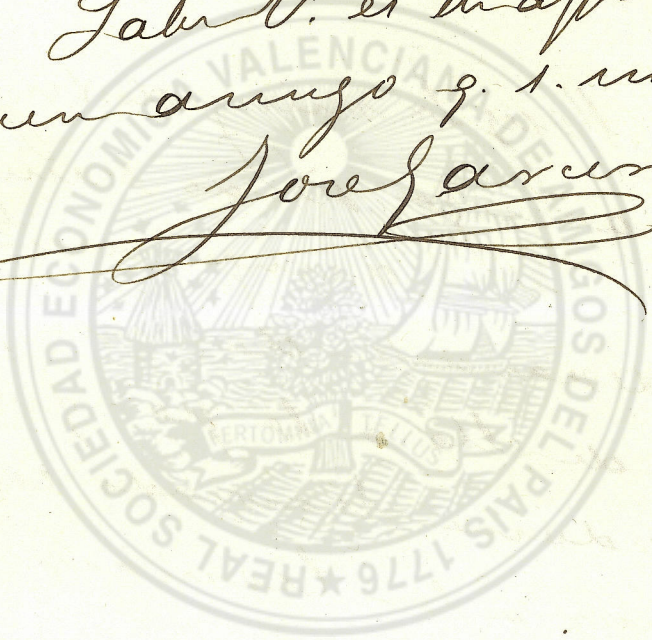 Sabe V. es
amigo q. s. m
José Garcer
REAL SOCIEDAD ECONOMICA VALENCIANA DE AMIGOS DEL PAIS 1776
FERTOMNIA TELLUS